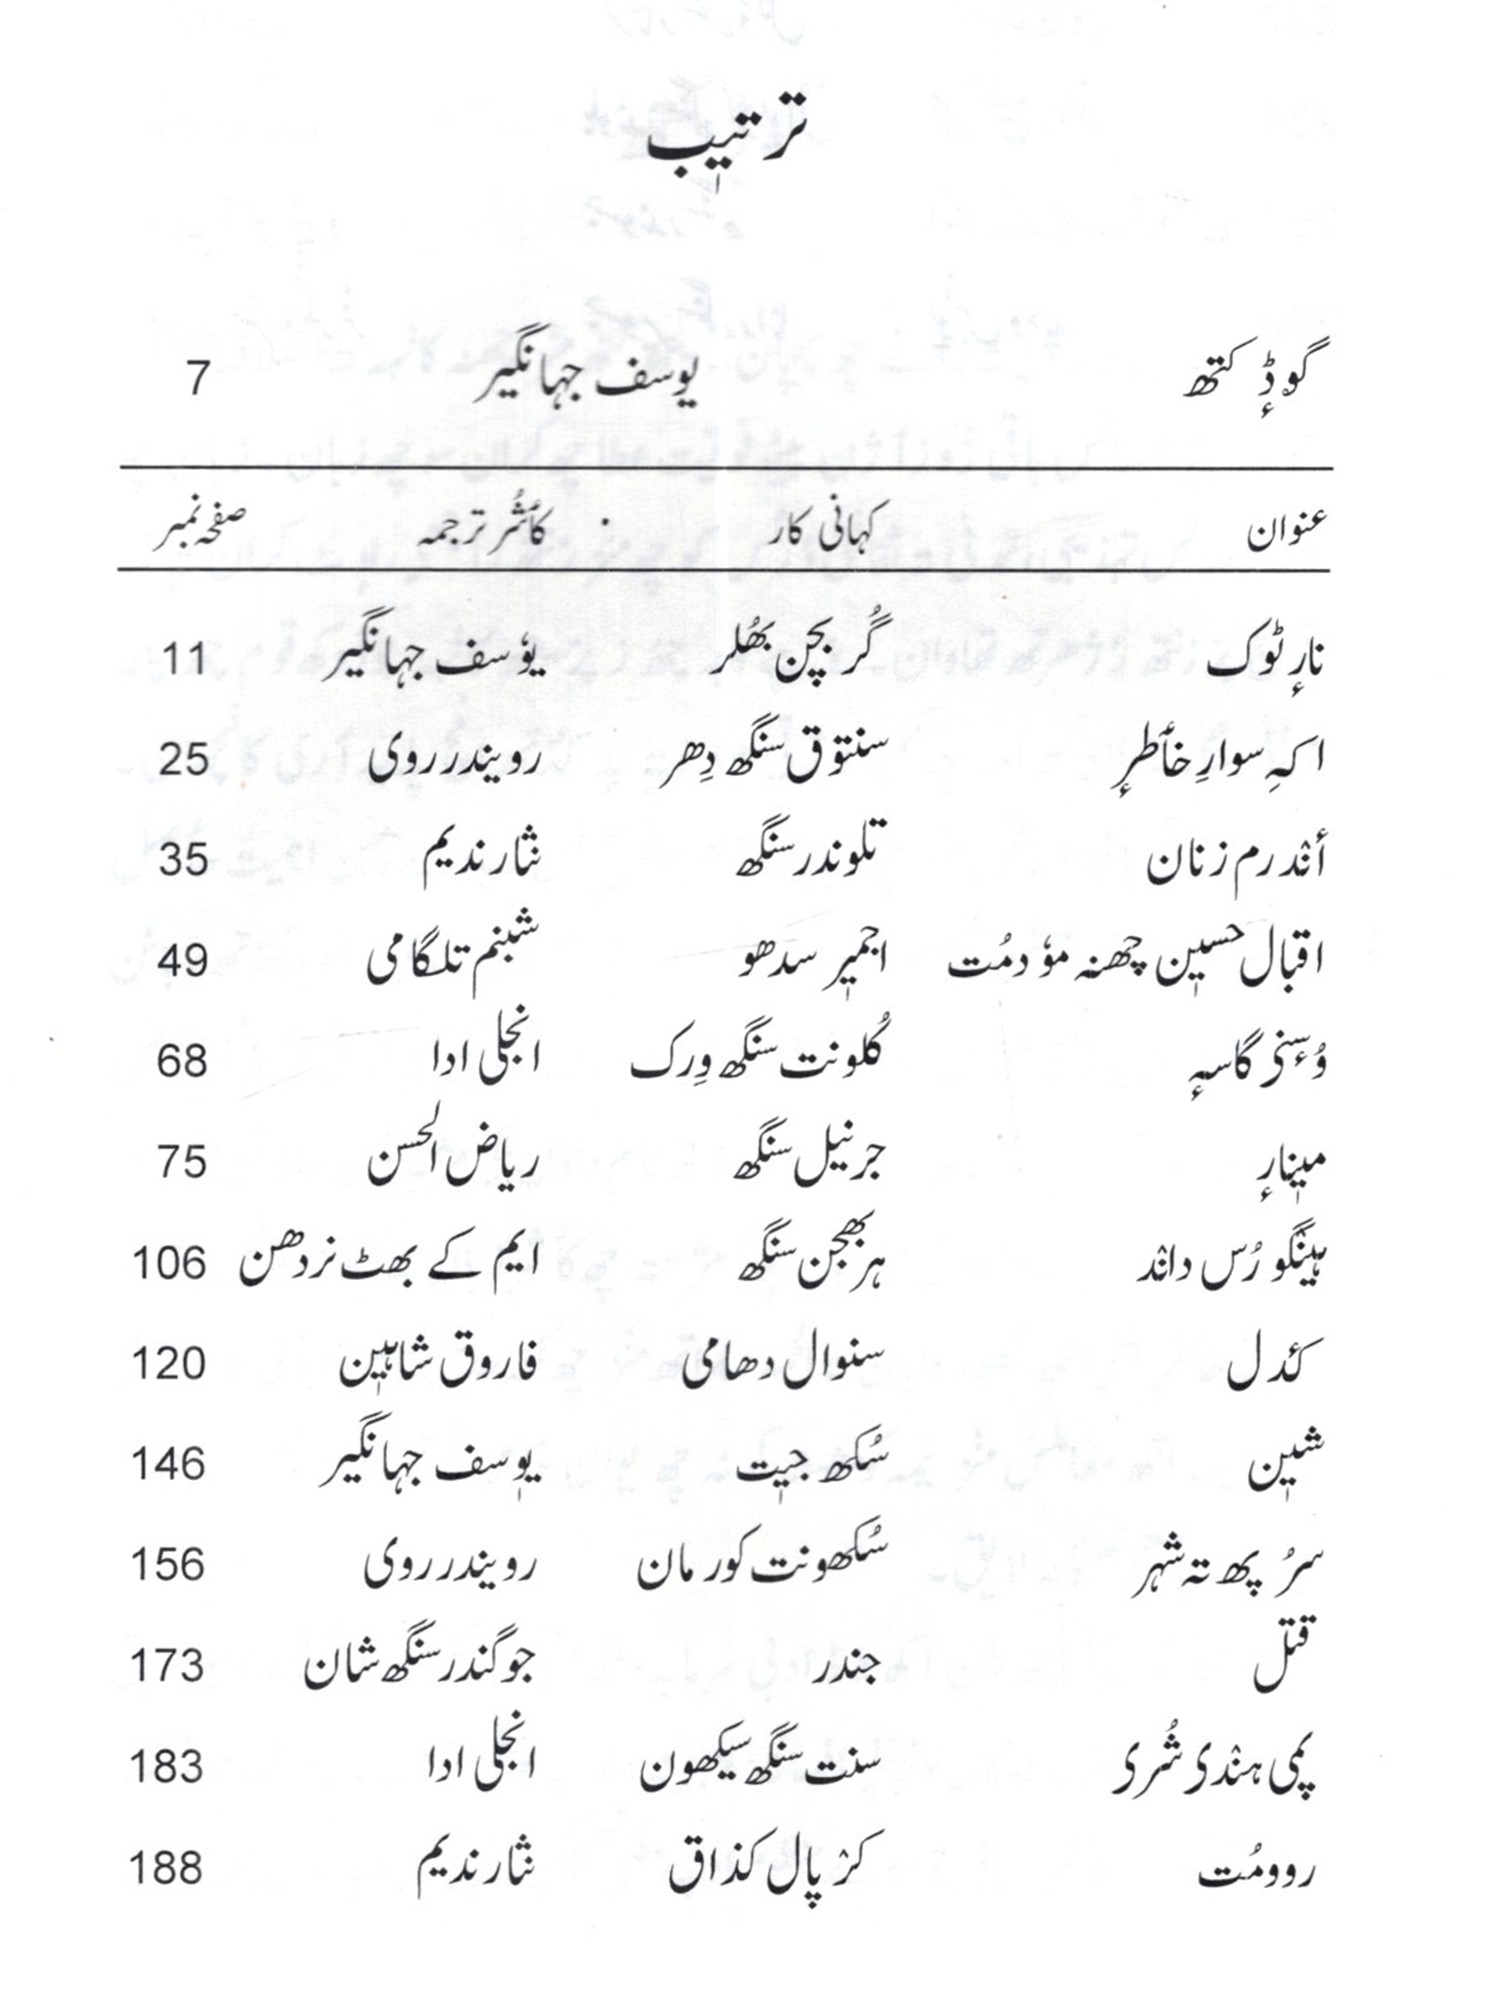 ترتیٖب
گوڈٕ کتھ یوسف جہانگیر 7
عنوان کہانی کار کٲشُر ترجمہ صفحہ نمبر
نارٕ ٹوک گُر بچن بھُلر یوٗسف جہانگیر 11
اکہِ سوارِ خٲطرٕ سنتوق سنگھ دِھر رویندر روی 25
أنٛدرم زنان تلوندر سنگھ نثار ندیم 35
اقبال حسیٖن چھنہ موٗدمُت اجمیٖر سدھو شبنم تلگامی 49
وُسٔنۍ گاسہٕ کُلونت سنگھ وِرک انجلی ادا 68
میٖنارٕ جرنیل سنگھ ریاض الحسن 75
ہینٛگو رُس دانٛد ہربھجن سنگھ ایم کے بھٹ نردھن 106
کٔدل سنوال دھامی فاروق شاہیٖن 120
شیٖن سُکھ جیٖت یوٗسف جہانگیر 146
سرُ پھ تہ شہر سُکھونت کور مان رویندر روی 156
قتل جندر جوگندر سنگھ شان 173
پمی ہنٛدۍ شُرۍ سنت سنگھ سیکھون انجلی ادا 183
روومُت کرٛ پال کذاق نثار ندیم 188